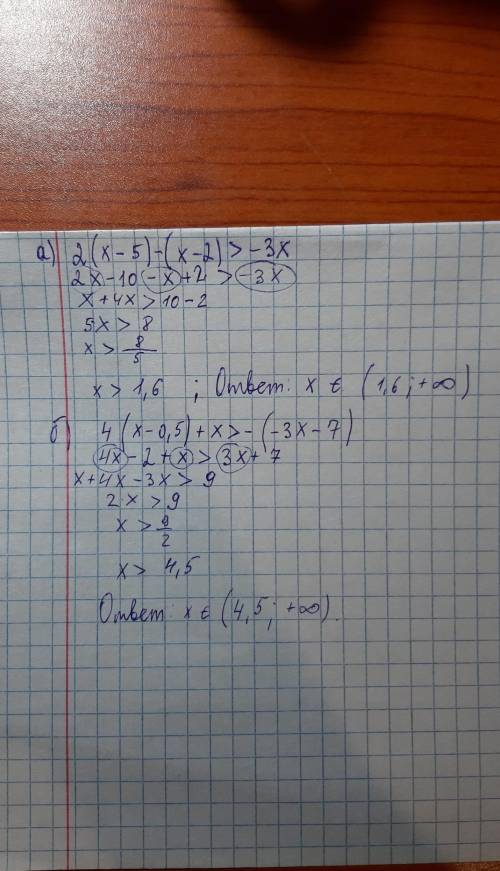 а) 2(x-5)-(x-2)>-3x
2x-10-x+2>-3x
x+4x>10-2
5x>8
x>8/5
x>1,6 ; Ответ: x ∈ (1,6;+∞)
б) 4(x-0,5)+x>-(-3x-7)
4x-2+x>3x+7
x+4x-3x>9
2x>9
x>9/2
x>4,5
Ответ: x ∈ (4,5; +∞).